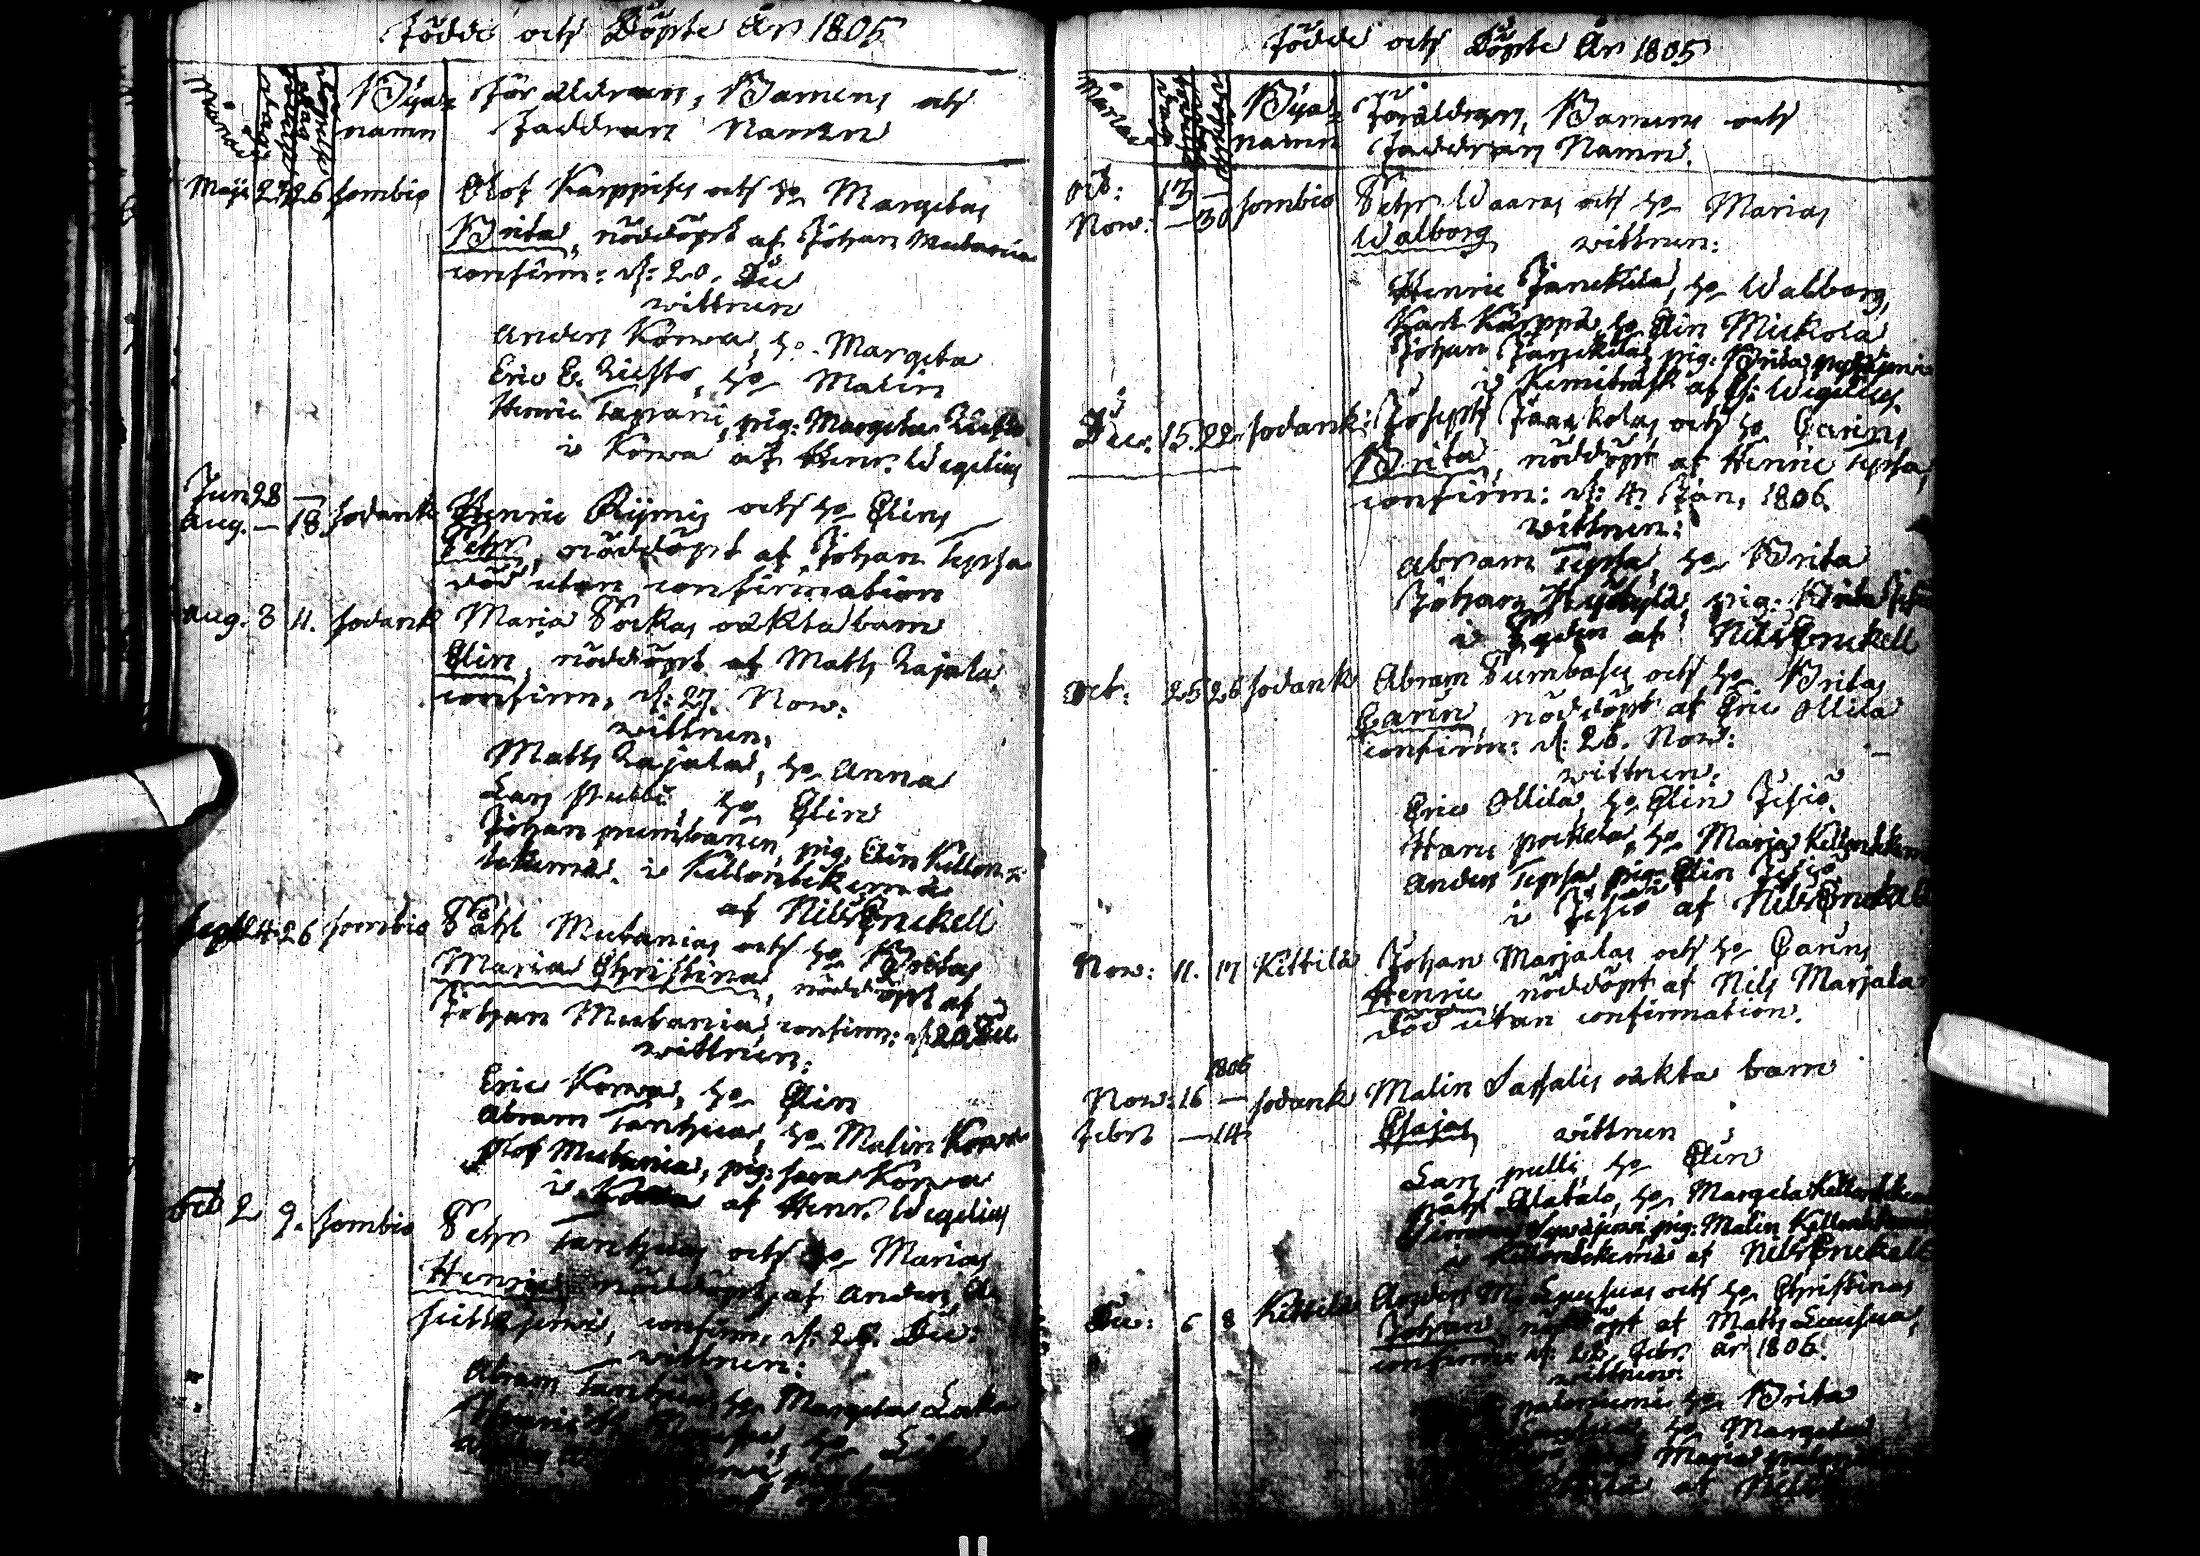 Födde och Döpte År 1805
Månad Bya= Föräldrars, Barnens och
namn Faddrars Namn
Maji 25 26 Sombio Olof Karppises och ho Margetas
Brita, nöddöpt af Johan Mutania
confirm: d: 20. Dec
wittnen
Anders Korva, ho. Margeta
Eric E. Liesto, ho Malin
Henric Tapani, pig: Margeta Liesto
i Korva af Henr. Wegelius
Jun 28 —
Aug. — 18. Sodank Henric Rijmis och ho Elins
Petr, nöddöpt af Johan Tepsa
död utan confirmation
Aug. 3 11. Sodank Maria Pockas oäkta barn
Elin, nöddöpt af Matts Lajala
confirm. d: 27. Now:
wittnen.
Matts Lajala, ho Anna
Lars Pulli, ho Elin
Johan pumbanen, pig. Elin Kellon=
tekemä. i Kellontekemä
af Nils Enckell
Sept 24. 26 Sombio Påhl Mutanias och ho Britas
Maria Christina, nöddöpt af
Johan Mutania, confirm: d: 20 Dec
wittnen:
Eric Korva, ho Elin
Abram Tanhua, ho Malin Korva
Olof Mutania, pig: Sara Korva
i Korva af Henr. Wegelius
Oct 2 9. Sombio Petr Tanhuas och ho Marias
Henric, nöddöpt af Anders
confirm. d: 26. Dec:
wittnen:
Abram Tanhua, ho Margeta Loka
Födde och Döpte År 1805
Månad Bya= Föräldrars, Barnens och
namn Faddrars Namn.
Oct: 13 — Sombio Petr Waaras och ho Marias
Now: — 30 Walborg wittnen:
Henric Janckila, ho Walborg,
Karl Karppa, ho Elin Mickola
Johan Janckila, pig: Brita
i Kemiträsk af H: Wegelius.
Dec. 15. 22. Sodank: Joseph Jaackolas och ho Carins
Brita, nöddöpt af Henric Tepsa,
confirm: d: 4. Jan. 1806.
wittnen:
Abram Tepsa, ho Brita
Johan pig: Brita
i af Nils Enckell
Oct: 25 26 Sodank Abram Pumbases och ho Britas
Carin, nöddöpt af Eric Ollila
confirm: d: 26. Now:
wittnen:
Eric Ollila, ho Elin Jesiö.
Hans pockela, ho Maria Kellontekem
Anders Tepsa pig: Elin Jesiö
i Jesiö af Nils Enckell
Now: 11. 17 Kittilä Johan Marjalas och ho Carins
Henric, nöddöpt af Nils Marjala
död utan confirmation.
1806
Now: 16 — Sodank Malin Sassalis oäkta barn
Febr — 14 Esajas wittnen
Lars pulli, ho Elin
påhl Alatalo, ho Margeta Kellontekem
pig: Malin Kellontekemä
i Kellontekemä af Nils Enckell
Dec: 6 8 Kittilä Anders M. Luusuas och ho Christinas
Johan, nöddöpt af Matts Luusua,
confirm: d: Febr. år 1806.
wittnen:
ho Brita
ho Margeta
Maria
af Nils